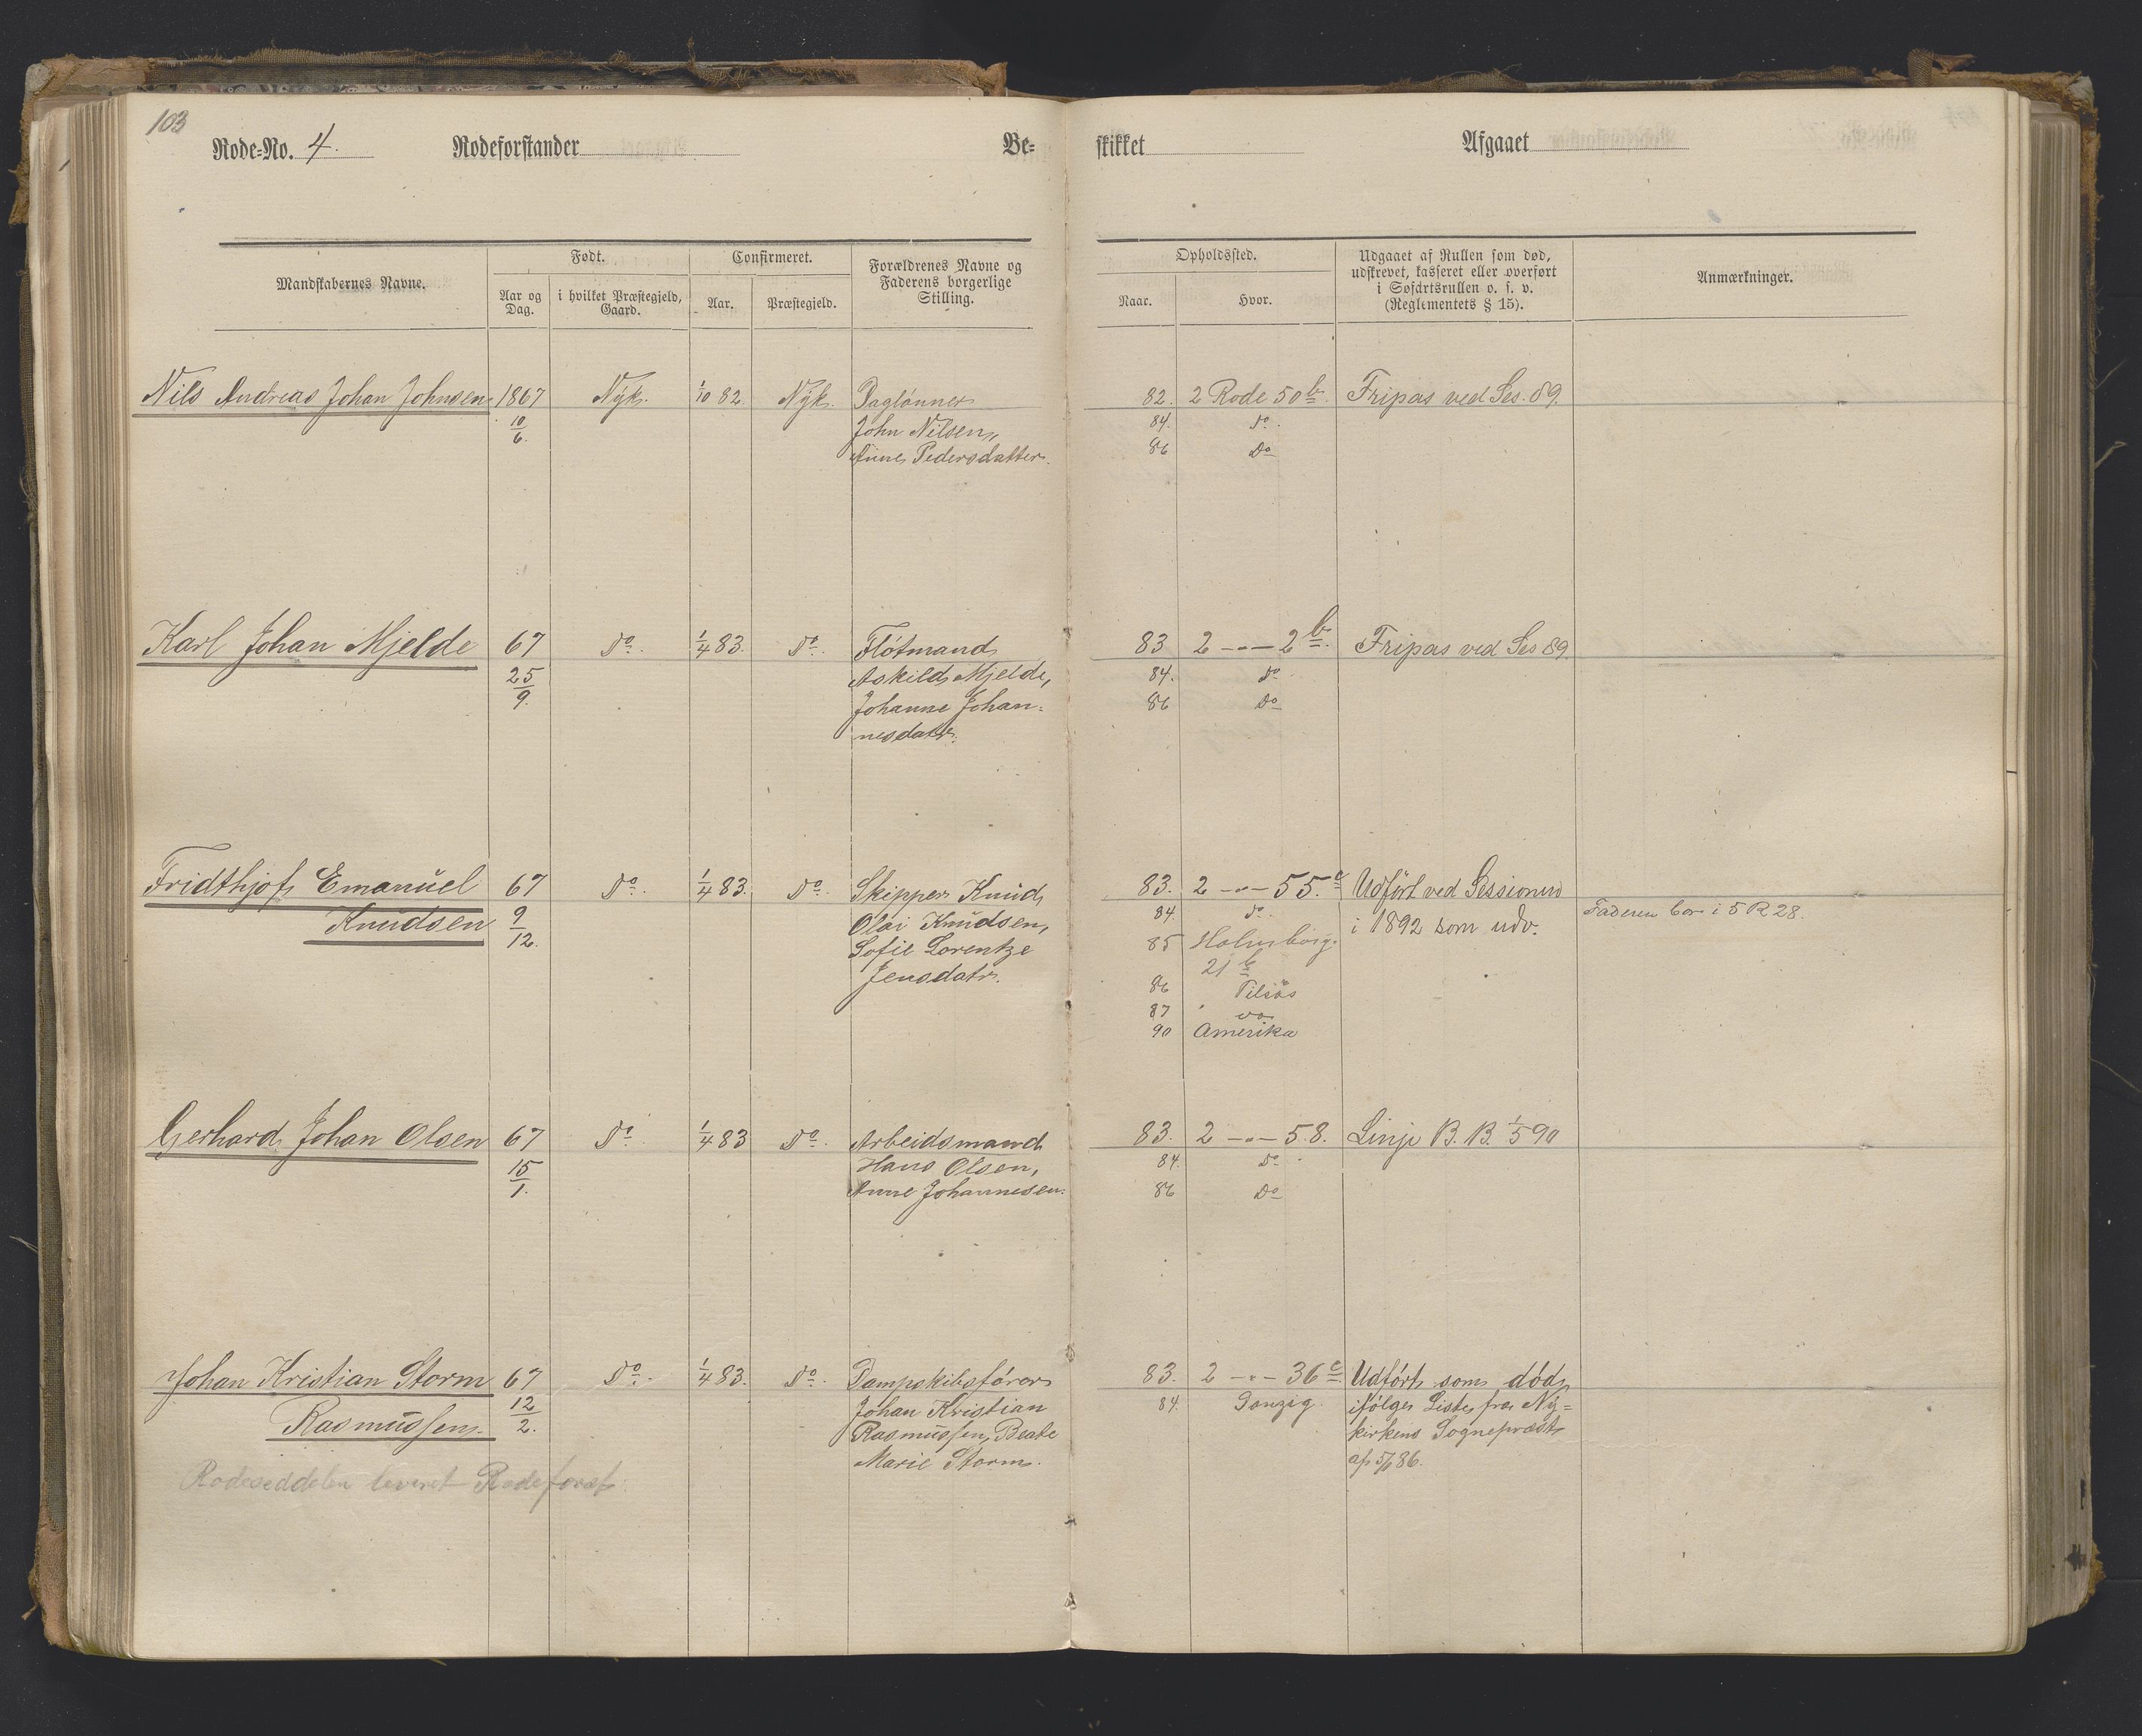 103
Rode-No. 4. Rodeforstander Be- skikket Afgaaet
Mandskabernes Navne.
Født.
Aar og Dag.
i hvilket Præstegjeld, Gaard.
Confirmeret.
Aar.
Præstegjeld.
Forældrenes Navne og
Faderens borgerlige
Stilling.
Opholdssted.
Naar.
Hvor.
Udgaaet af Rullen som død,
udskrevet, kasseret eller overført
i Søfartsrullen o. s. v.
(Reglementets § 15).
Anmærkninger.
Nils Andreas Johan Johnsen 1867 Nyk. 1/10 82. Nyk. Daglønner 82. 2 Rode 50 b Fripas ved Ses. 89.
10/6. John Nilsen, 84. Do.
Anne Pedersdatter. 86 Do
Karl Johan Mjelde 67 Do. 1/4 83. Do. Fløtmand 83 2 -"- 2 b. Fripas ved Ses 89.
25/9. Askild Mjelde, 84. Do
Johanne Johan- 86 Do
nesdatr.
Fridthjof Emanuel 67 Do. 1/4 83. Do. Skipper Knud 83. 2 -"- 55. c Udført ved Sessionen
Knudsen 9/12. Olai Knudsen, 84. Do. i 1892 som udv. Faderen bor i 5 R 28.
Sofie Lorentze 85 Holmborg.
Jensdatr. 21 b
86 Tilsøs
87 do
90 Amerika
Gerhard Johan Olsen 67 Do. 1/4 83 Do. Arbeidsmand 83. 2 -"- 58. Linje B. B. 1/5 90
15/1. Hans Olsen, 84. Do.
Anne Johannesen. 86 Do
Johan Kristian Storm 67 Do. 1/4 83. Do. Dampskibsfører 83. 2 -"- 36 c Udført som død
Rasmussen. 12/2. Johan Kristian 84. Danzig. ifølge Liste fra Ny=
Rasmussen, Beate kirkens Sogneprest
Marie Storm. af 5/ 86.
Rodeseddelen leveret Rodeforst.